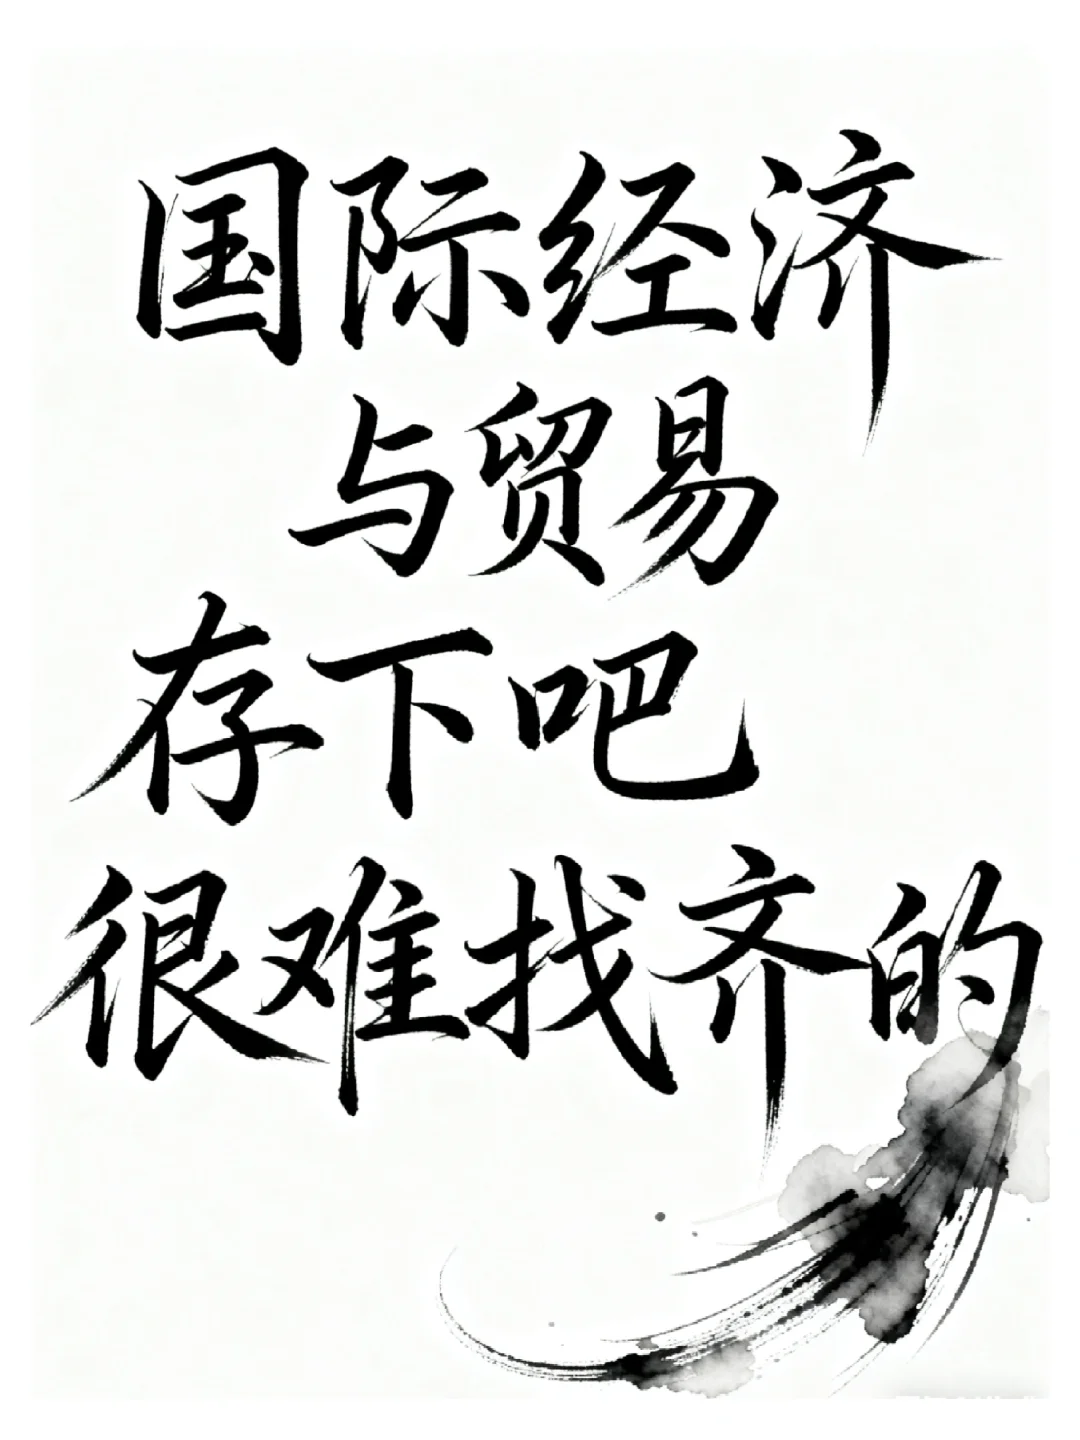 国际经济
与贸易
存下吧
很难找齐的